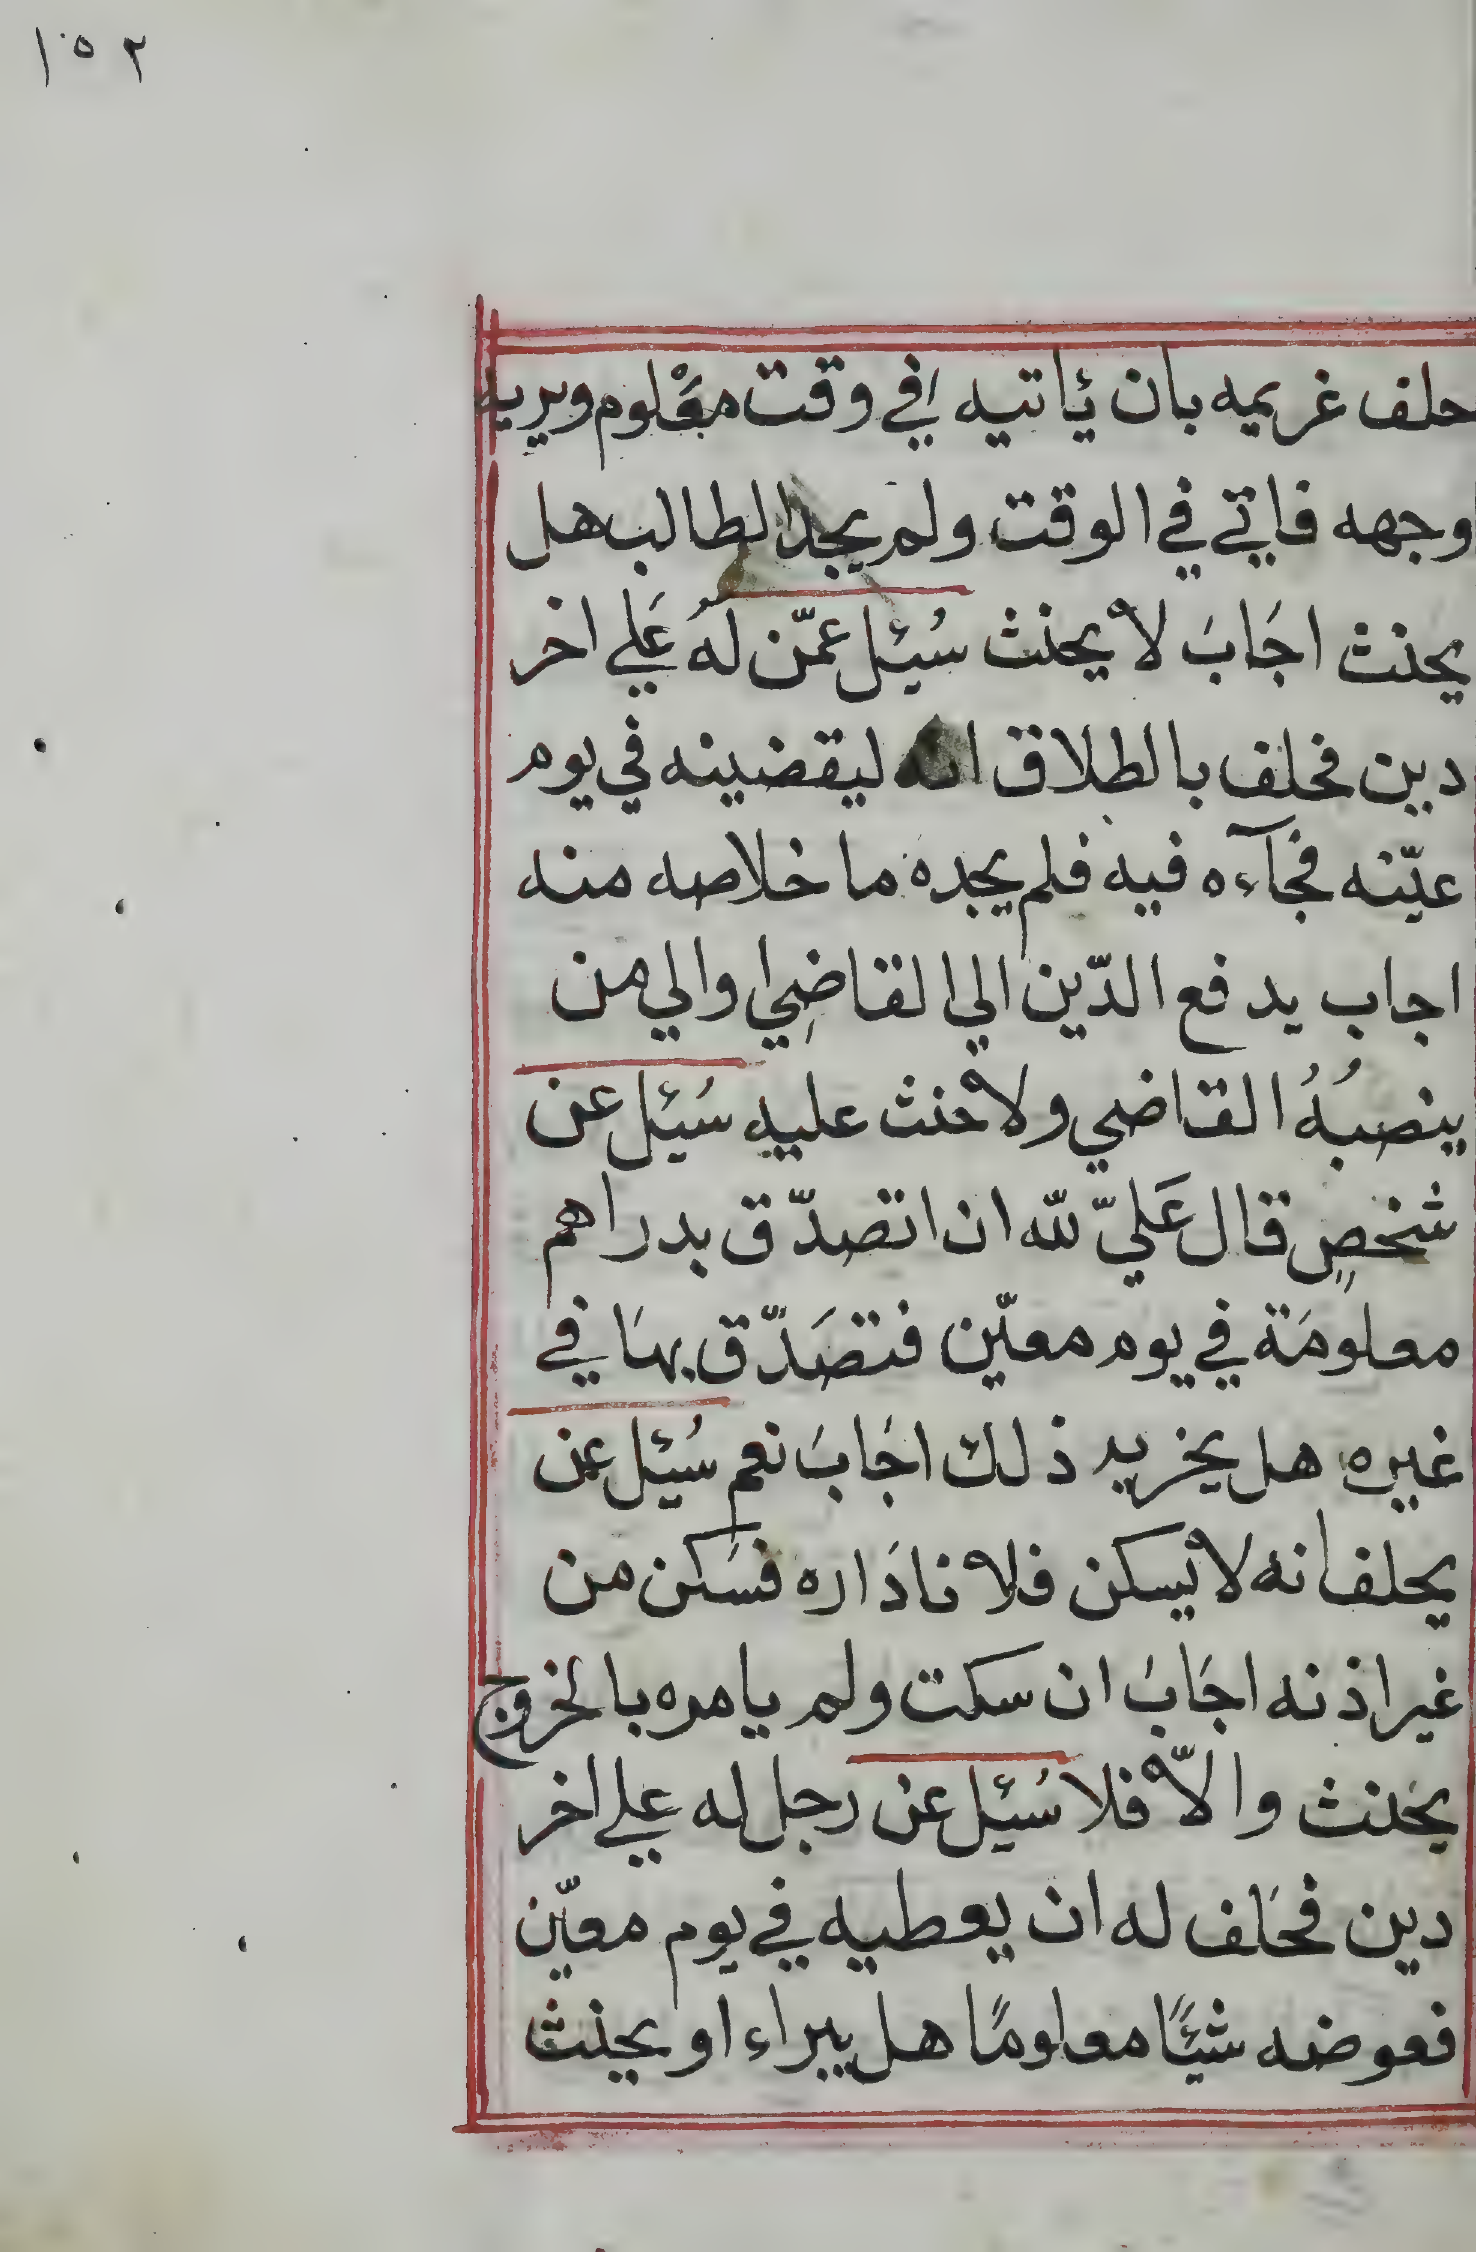 ١٥٢
حلف غريمه بان ئاتيه في وقت معْلوم ويريه
وجهه فاتي في الوقت ولم يجد الطالب هل
يحنث اجَابَ لا يحنث سُئِل عمّن لهُ عَلي اخر
دين فحلف بالطلاق انه ليقضينه في يوم
عيّنه فجآءه فيه فلم يجده ما خلاصه منه
اجاب يدفع الدّين الي القاضِي او الي من
ينصبُهُ القاضي ولا حنث عليه سُئِل عن
شخصٍ قال عَليّ لله ان اتصدّق بدراهم
معلومَة في يوم معيّن فتصَدّق بهَا في
غيره هل يخريه ذلك اجَابَ نعم سُئِل عمن
يحلف انه لا يسكن فلانا دَاره فسَكن من
غير اذنه اجَابَ ان سكت ولم يامره بالخروج
يحَنث والاّ فلا سُئِل عن رجل له علي اخر
دين فحَلف له ان يعطيه في يوم معيّن
فعوضه شيئًا معلومًا هل يبراء او يحنث